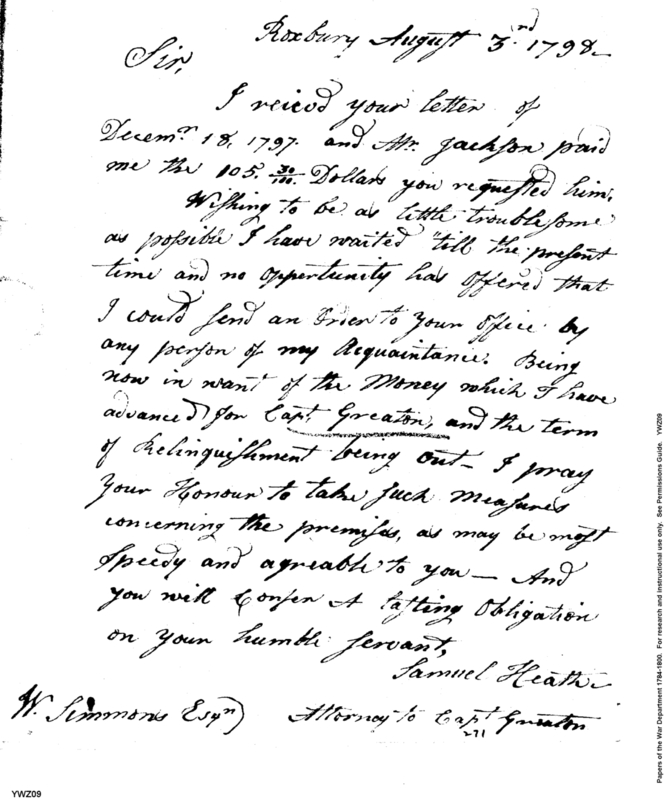 Roxbury August 3.rd 1798.
Sir,
I reicvd your letter of
Decemr 18, 1797. and Mr. Jackson paid
me the 105. 30/100. Dollars you requested him.
Wishing to be as little troublesome
as possible I have waited 'till the present
time and no oppertunity has offered that
I could send an order to your office by
any person of my Acquaintance. Being
now in want of the Money which I have
advanced for Capt Greaton, and the term
of Relinquishment being out - I pray
your Honour to take such Measures
concerning the premises, as may be most
speedy and agreable to you - And
you will Confer A lasting Obligation
on your humble servant,
Samuel Heath
W. Simmons Esqr) Attorney to Capt Greaton
271
YWZ09
Papers of the War Department 1784-1800. For research and instructional use only. See Permissions Guide. YWZ09